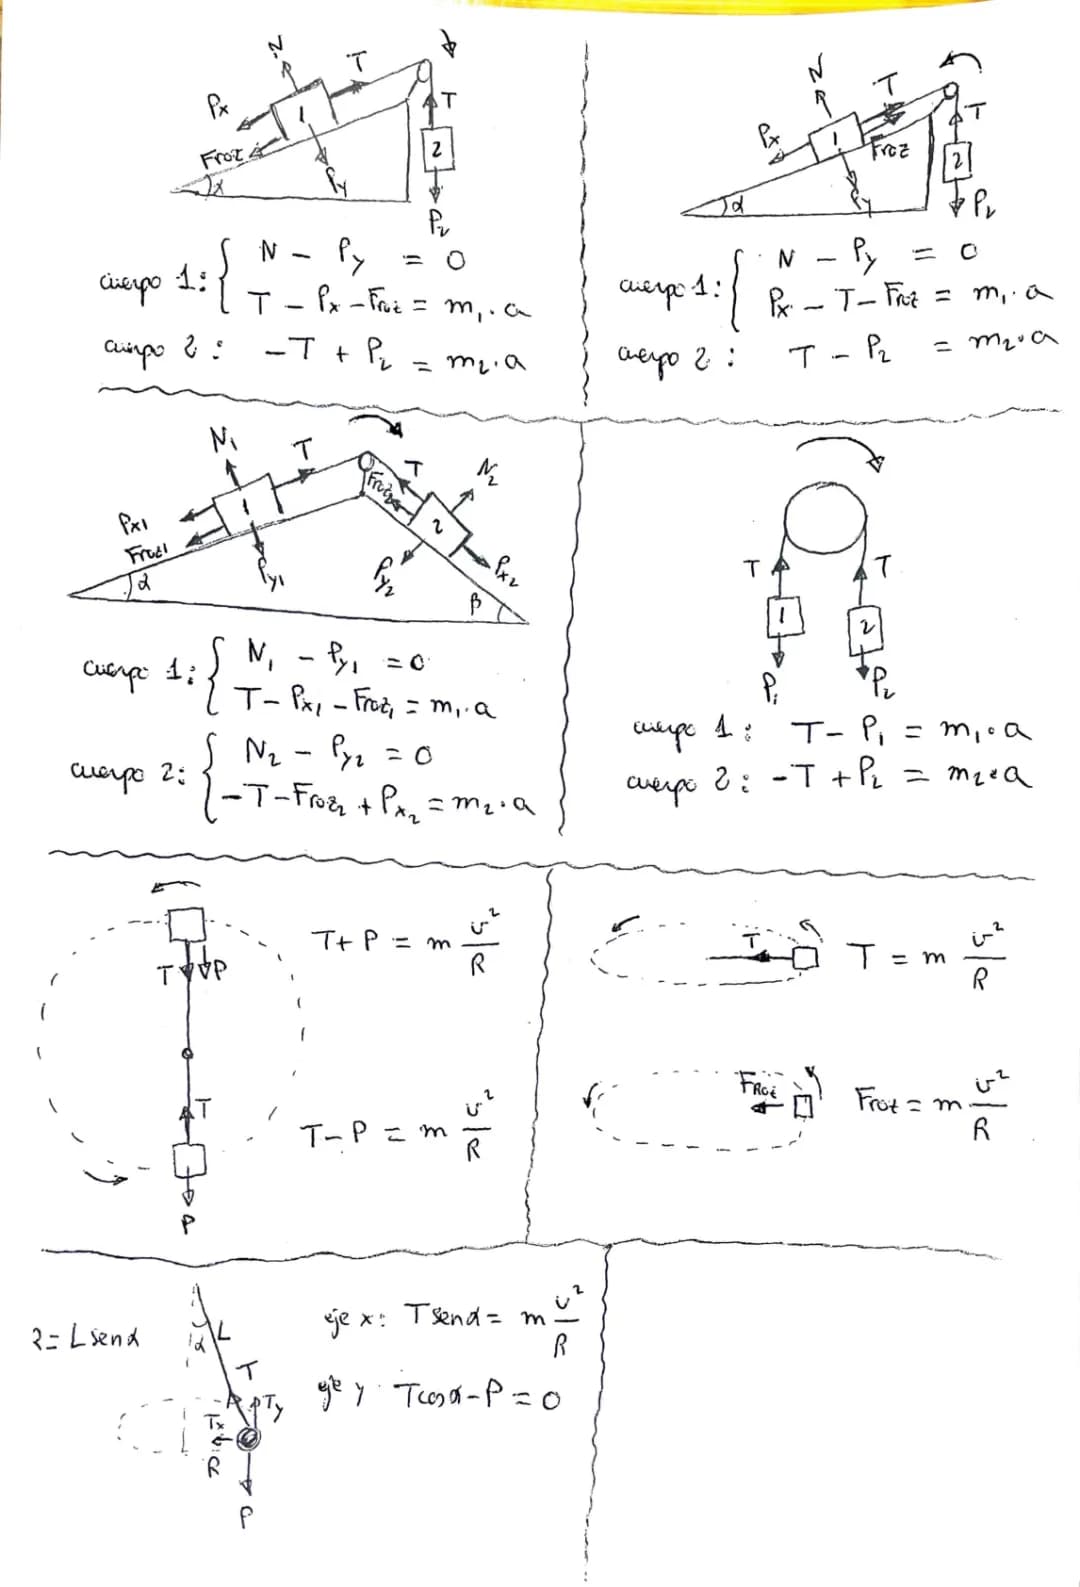 N
T
Px
Froz
1
T
2
Py
α
P₂
cuerpo 1: { N - Py = 0
T - Px - Froz = m₁·a
cuerpo 2: -T + P₂ = m₂·a
N
T
Px
1
Froz
T
2
Py
α
P₂
cuerpo 1: { N - Py = 0
Px - T - Froz = m₁·a
cuerpo 2: T - P₂ = m₂·a
N₁
T
T
N₂
Froz₂
Px1
1
2
Froz1
Py1
Py2
Px2
α
β
cuerpo 1: { N₁ - Py₁ = 0
T - Px₁ - Froz₁ = m₁·a
cuerpo 2: { N₂ - Py₂ = 0
-T - Froz₂ + Px₂ = m₂·a
T
T
1
2
P₁
P₂
cuerpo 1: T - P₁ = m₁·a
cuerpo 2: -T + P₂ = m₂·a
T P
T + P = m v²/R
T
T - P = m v²/R
P
T
T = m v²/R
FRoz
Froz = m v²/R
R = L senα
α
L
T
Ty
Tx
R
P
eje x: T senα = m v²/R
eje y T cosα - P = 0